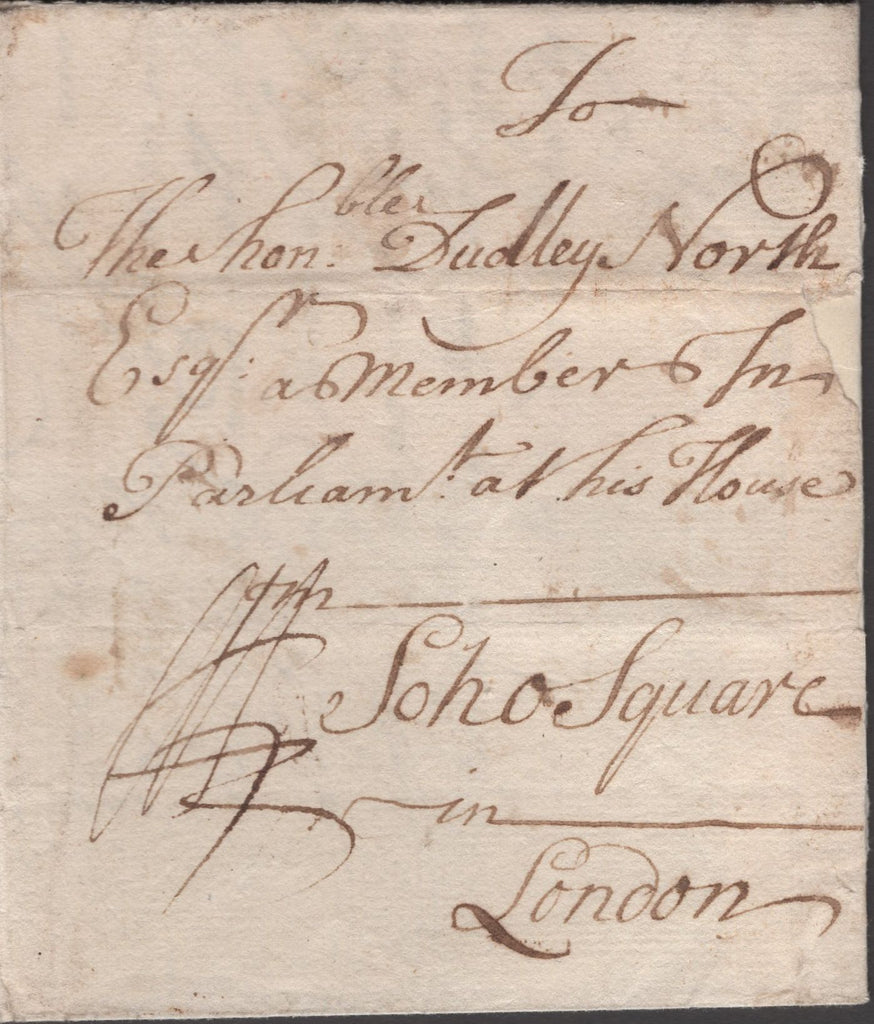 To
The hon.ble Dudley North
Esqr: a Member In
Parliamt. at his House
In
Soho Square
in
London